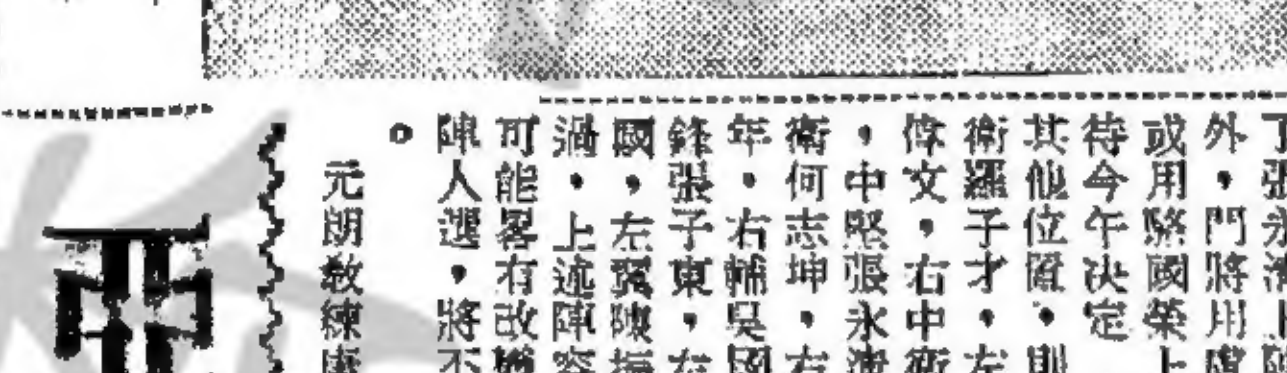 外，門將用
或用駱國榮上
待今午決定
其他位置，則
衛羅子才，左
偉文，右中衛
，中堅張永
衛何志坤，右
年，右輔吳國
鋒張子東，左
國，左翼陳振
過，上述陣容
可能畧有改
陣人選，將不
。
元朗敎練